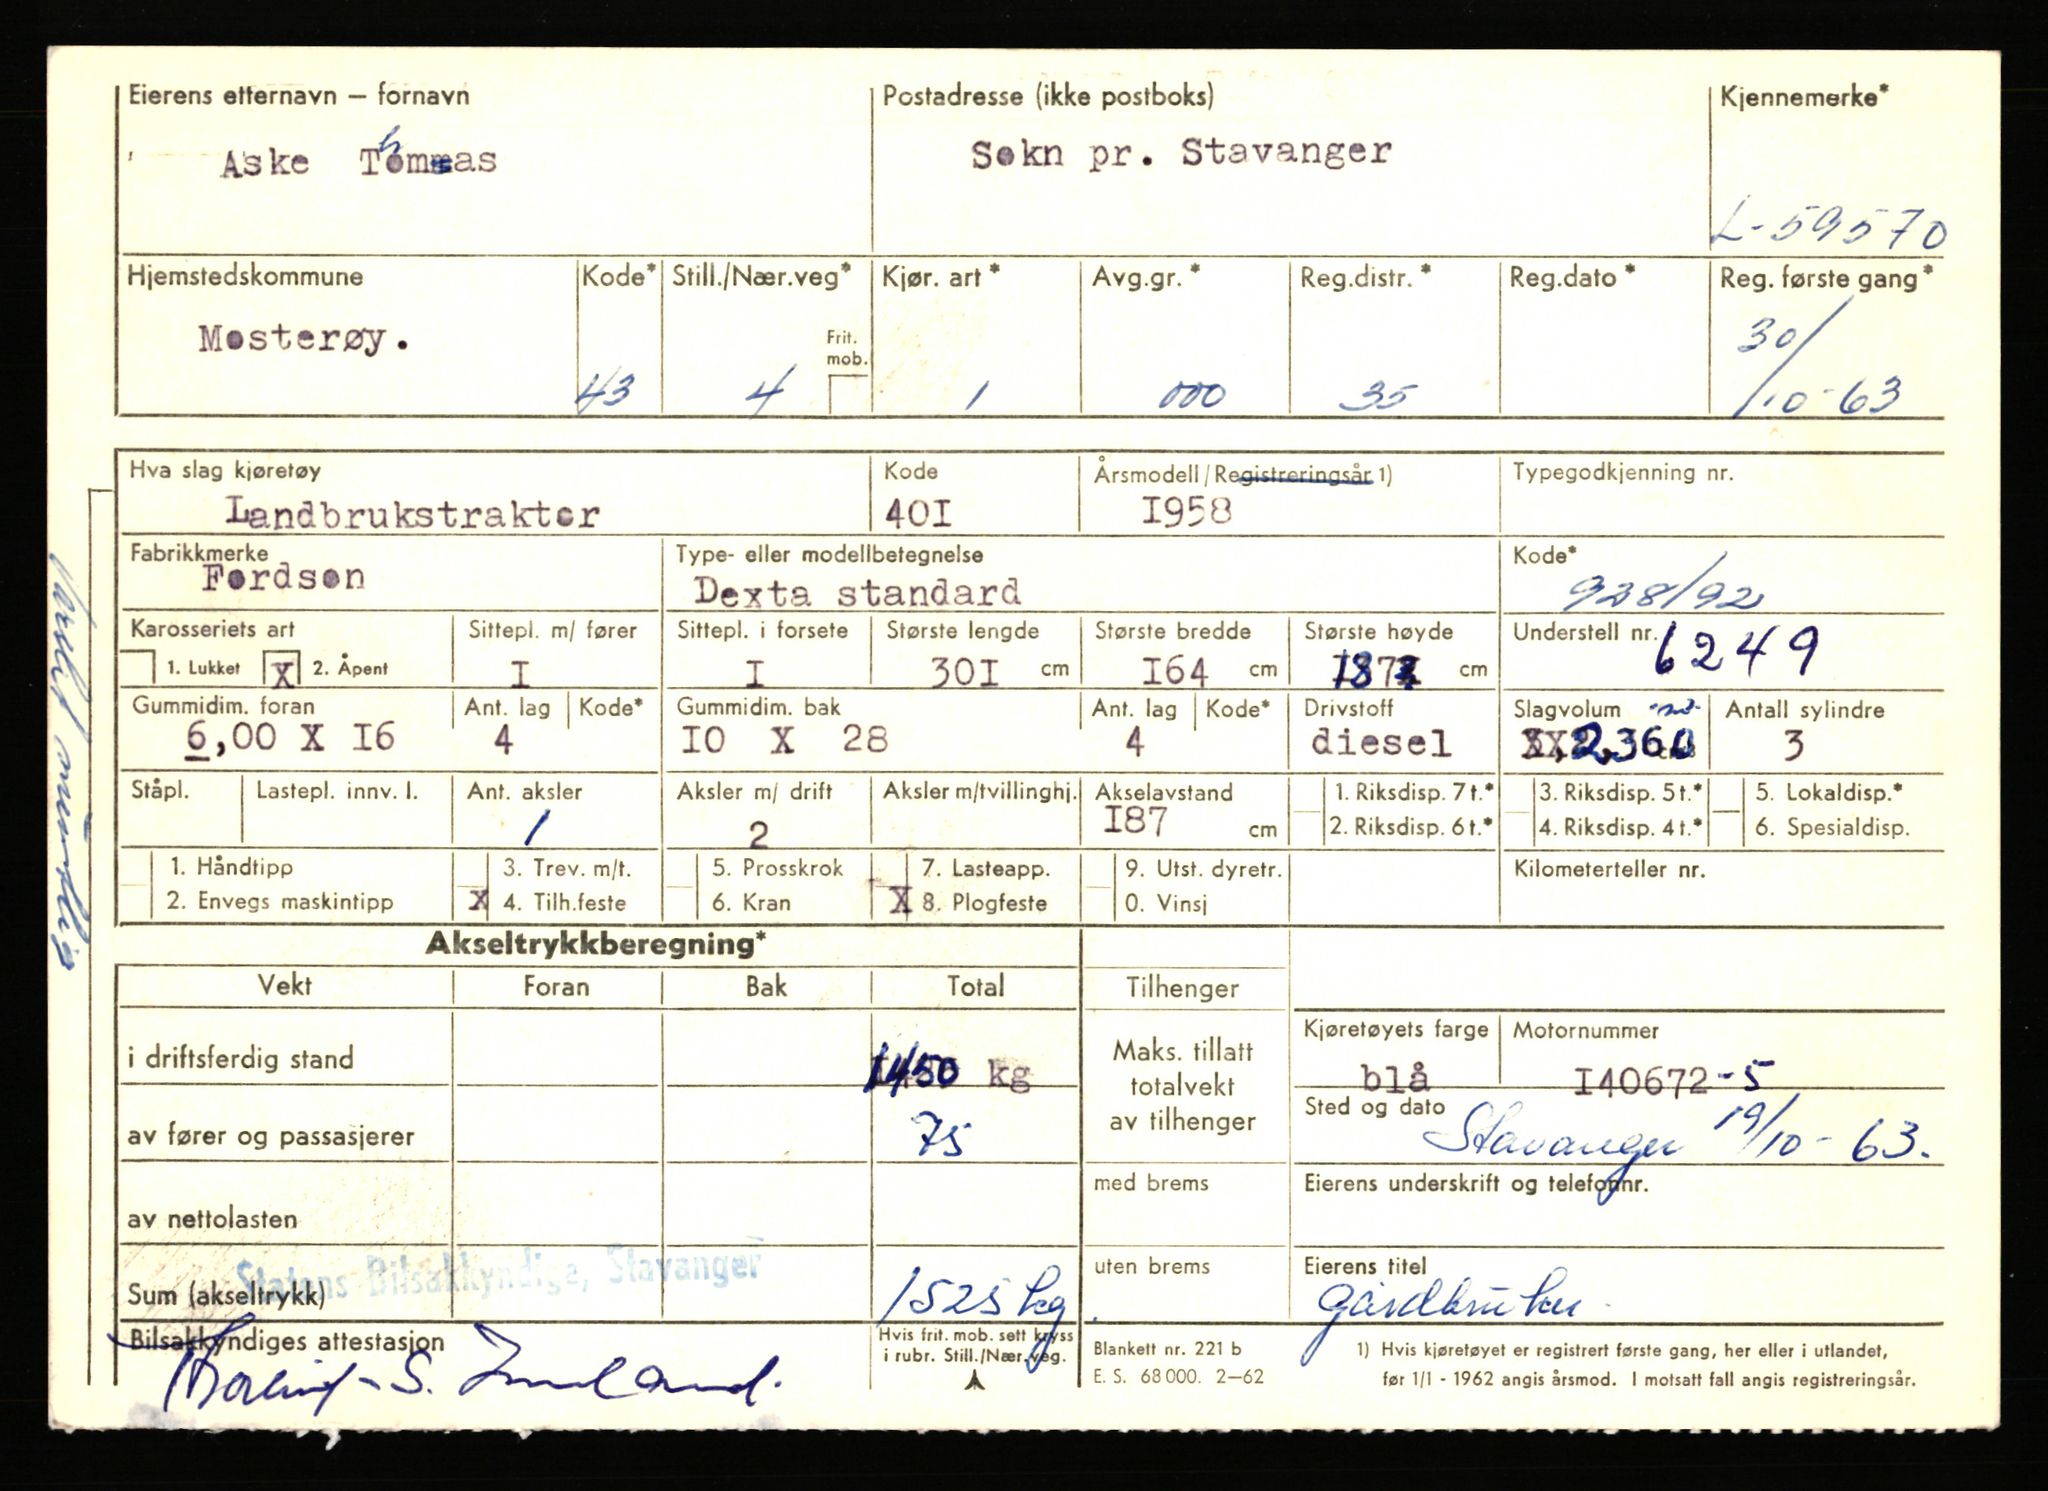 Eierens etternavn — fornavn Postadresse (ikke postboks) Kjennemerke*
Aske Thomas Sokn pr. Stavanger
L-59570
Hjemstedskommune Kode* Still./Nær.veg* Kjør. art* Avg.gr.* Reg.distr.* Reg.dato* Reg. første gang*
Mosterøy. Frit. mob. 30/
43 4 1 000 35 /10-63
Hva slag kjøretøy Kode Årsmodell/Registreringsår 1) Typegodkjenning nr.
Landbrukstraktor 40I I958
Fabrikkmerke Type- eller modellbetegnelse Kode*
Fordson Dexta standard 928/92
Karosseriets art Sittepl. m/ fører Sittepl. i forsete Største lengde Største bredde Største høyde Understell nr. 6249
1. Lukket X 2. Åpent I I 30I cm I64 cm 187 cm
Gummidim. foran Ant. lag Kode* Gummidim. bak Ant. lag Kode* Drivstoff Slagvolum Antall sylindre
6,00 X I6 4 I0 X 28 4 diesel 2,360 3
Ståpl. Lastepl. innv. l. Ant. aksler Aksler m/ drift Aksler m/tvillinghj. Akselavstand 1. Riksdisp. 7 t.* 3. Riksdisp. 5 t.* 5. Lokaldisp.*
1 2 I87 cm 2. Riksdisp. 6 t.* 4. Riksdisp. 4 t.* 6. Spesialdisp.
1. Håndtipp 3. Trev. m/t. 5. Prosskrok 7. Lasteapp. 9. Utst. dyretr. Kilometerteller nr.
2. Envegs maskintipp X 4. Tilh.feste 6. Kran X 8. Plogfeste 0. Vinsj
Akseltrykkberegning*
Vekt Foran Bak Total Tilhenger
Kjøretøyets farge Motornummer
i driftsferdig stand 1450 kg Maks. tillatt totalvekt av tilhenger blå I40672-5
Sted og dato
av fører og passasjerer 75 Stavanger 19/10-63.
med brems Eierens underskrift og telefonnr.
av nettolasten
Statens Bilsakkyndige, Stavanger
uten brems Eierens titel
Sum (akseltrykk) 1525 kg Gårdbruker
Bilsakkyndiges attestasjon Hvis frit. mob. sett kryss Blankett nr. 221 b 1) Hvis kjøretøyet er registrert første gang, her eller i utlandet,
i rubr. Still./Nær.veg. E. S. 68 000. 2—62 før 1/1 - 1962 angis årsmod. I motsatt fall angis registreringsår.